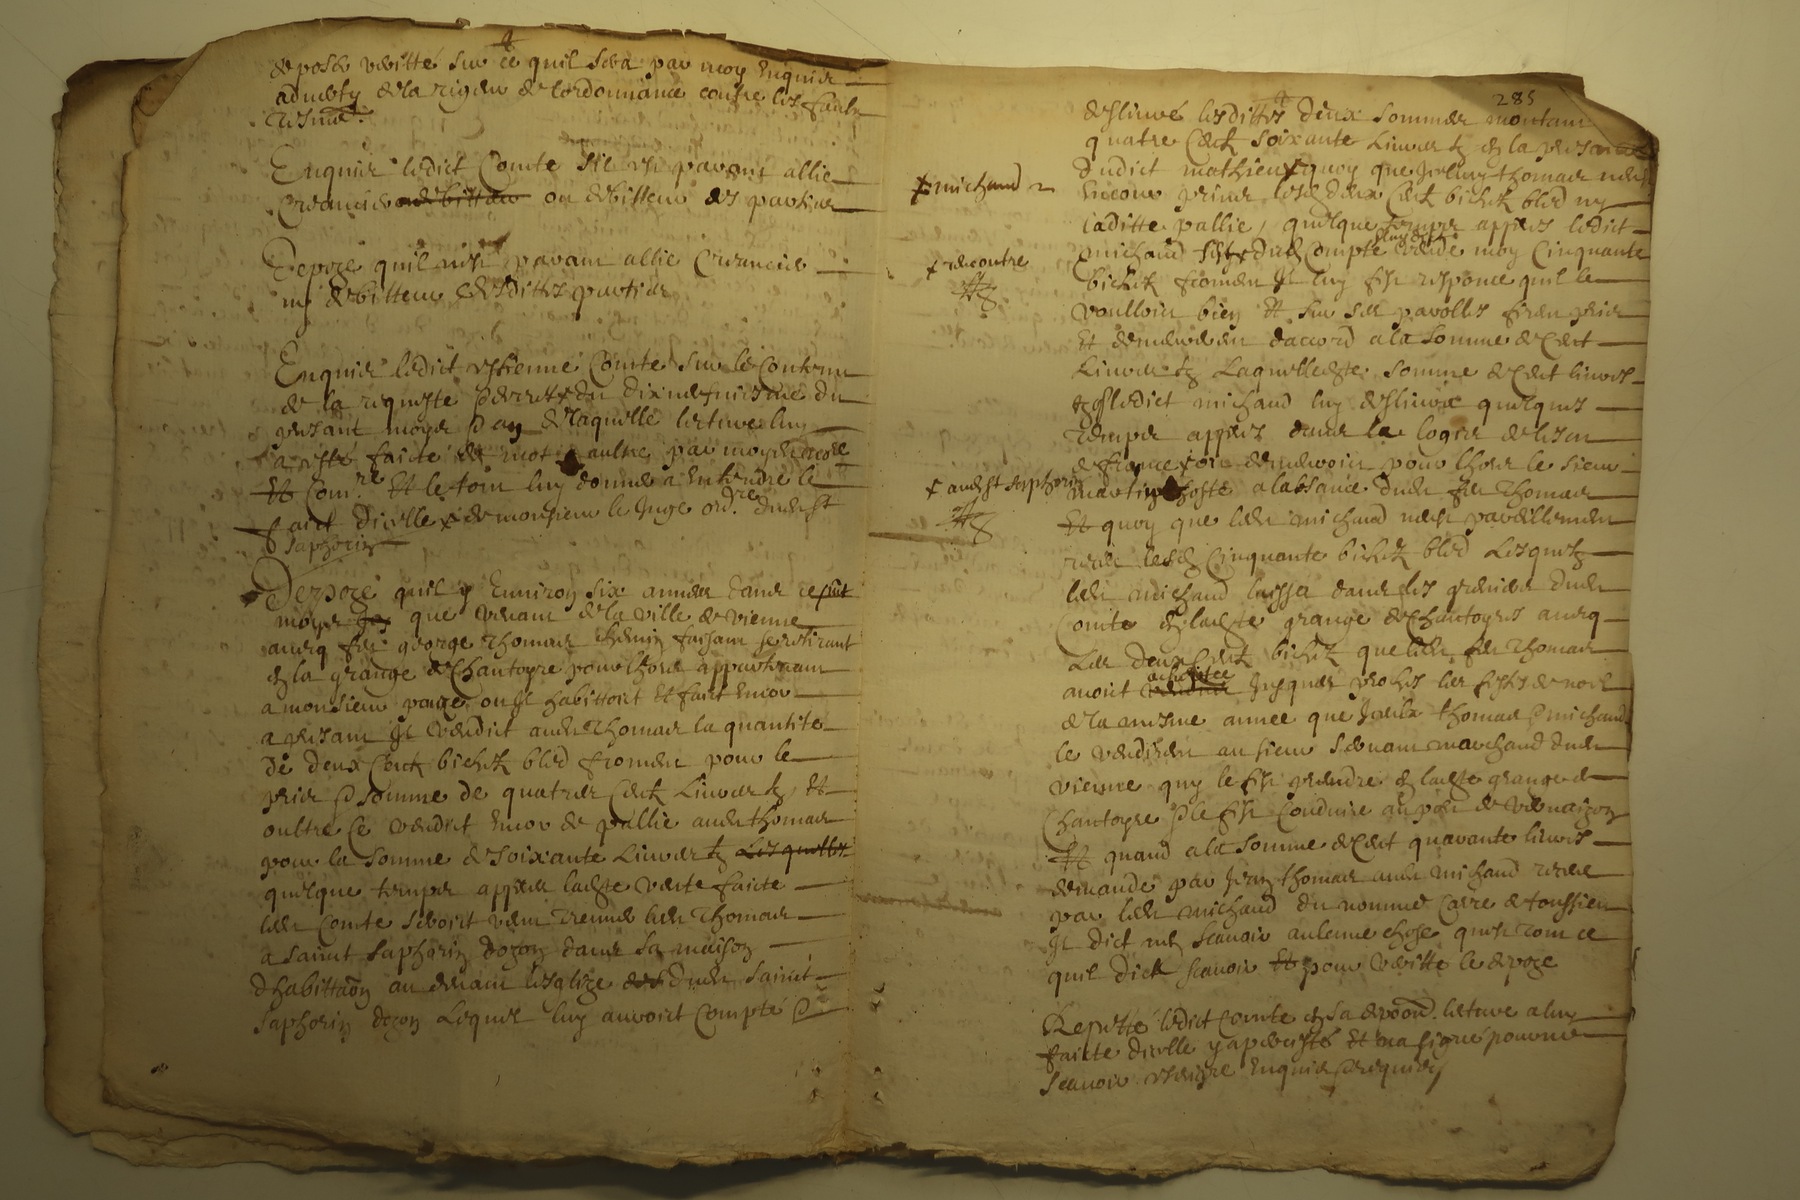 depose veritté sur ce quil sera par moy Enquis
adverty de la rigeur de lordonnance contre les faulx
tesmoins
Enquis ledict Comte sil est parant allie
Creancier ou debitteur des parties
Depoze quil nest parant allie Creancier
ny debitteur desdittes parties
Enquis ledict estienne Comte sur le Contenu
de la requeste du dix neufviesme du
presant moys de laquelle lecture luy
a esté faicte de mot a aultre par moydict
Et le tout luy donne a Entendre le
faict dicelle de monsieur le Juge ord.re dudict St
saphorin
Depoze quil y Environ six annees dans ce
moys que venant de la ville de vienne
avecq feu george Thomas chemin faisant se retirant
en la grange de Chantoyre pour lhors appartenant
a monsieur page ou Il habittoit Et faict Encor
a presant Il vendict audit Thomas la quantité
de deux Cent bichetz bled froment pour le
pris & somme de quatre Cent Livres tz Et
oultre ce vendit Encor de pallie audit thomas
pour la somme de soixante Livres tz Lesquelles
quelque temps appres ladte vante faicte
ledit Comte seroit venu treuver ledit Thomas
a saint saphorin dozon dans sa maison
dhabittaon au devant lesglize dudit saint
saphorin dozon Lequel luy auroit Compté &
285
deslivré lesdittes deux sommes montant
quatre Cent soixante Livres tz en la presance
dudict mathieu quoy que Jcelluy thomas neust
Encore prins lesd deux Cent bichetz bled ny
laditte pallie, quelque temps appres ledict
michaud dud Compte vende moy Cinquante
bichetz froment Il luy fist responce quil le
voulloir bien Et sur ses parolles firent pris
Et demeurerent daccord a la somme de Cent
Livres tz Laquelledte somme de Cent livres
tz ledict michaud luy deslivra quelques
temps appres dans le logis de lescu
de france pour lhors le sieur
martin hoste a labsance dudit feu Thomas
Et quoy que ledit michaud neust pareillement
lesd Cinquante bichetz bled Lesquelz
ledit michaud laissa dans les greniers dudit
Comte en ladte grange de Chantoyre avecq
Les deux Cent bichetz que ledit feu Thomas
avoit achepttee Jusques les festes de noel
de la mesme annee que Jceulx thomas & michaud
le vendirent au sieur marchand dudit
vienne quy le fist prendre en ladte grange de
Chantoyre & le fist Conduire au port de vernaizon
Et quand a la somme de Cent quarante livres
demandé par Jean thomas audit michaud
par ledit michaud du nommé de toussieu
Il dict nen scavoir aulcune chose quest tout ce
quil dict scavoir Et pour veritté le depoze
Repetté ledict Comte en sa depoon lecture a luy
faicte dicelle y a percisté Et na signé pour ne
scavoir escripre Enquis & requis
michaud
rencontre
audict St saphorin